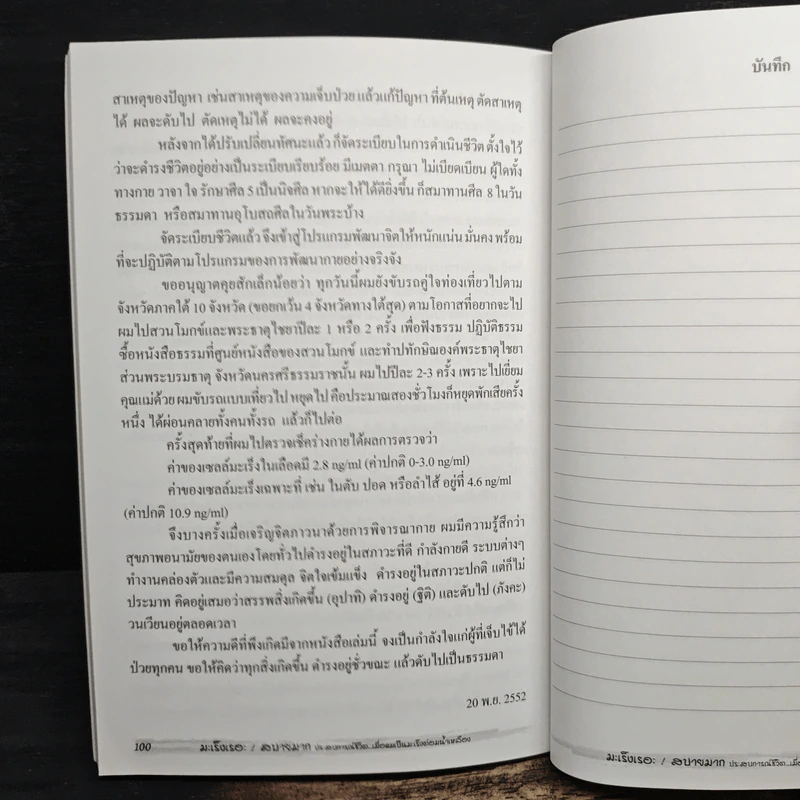 สาเหตุของปัญหา เช่นสาเหตุของความเจ็บป่วย แล้วแก้ปัญหา ที่ต้นเหตุ ตัดสาเหตุ
ได้ ผลจะดับไป ตัดเหตุไม่ได้ ผลจะคงอยู่
หลังจากได้ปรับเปลี่ยนทัศนะแล้ว ก็จัดระเบียบในการดำเนินชีวิต ตั้งใจไว้
ว่าจะดำรงชีวิตอยู่อย่างเป็นระเบียบเรียบร้อย มีเมตตา กรุณา ไม่เบียดเบียน ผู้ใดทั้ง
ทางกาย วาจา ใจ รักษาศีล 5 เป็นนิจศีล หากจะให้ได้ดียิ่งขึ้น ก็สมาทานศีล 8 ในวัน
ธรรมดา หรือสมาทานอุโบสถศีลในวันพระบ้าง
จัดระเบียบชีวิตแล้ว จึงเข้าสู่โปรแกรมพัฒนาจิตให้หนักแน่น มั่นคง พร้อม
ที่จะปฏิบัติตามโปรแกรมของการพัฒนากายอย่างจริงจัง
ขออนุญาตคุยสักเล็กน้อยว่า ทุกวันนี้ผมยังขับรถคู่ใจท่องเที่ยวไปตาม
จังหวัดภาคใต้ 10 จังหวัด (ขอยกเว้น 4 จังหวัดทางใต้สุด) ตามโอกาสที่อยากจะไป
ผมไปสวนโมกข์และพระธาตุไชยาปีละ 1 หรือ 2 ครั้ง เพื่อฟังธรรม ปฏิบัติธรรม
ซื้อหนังสือธรรมที่ศูนย์หนังสือของสวนโมกข์ และทำปทักษิณองค์พระธาตุไชยา
ส่วนพระบรมธาตุ จังหวัดนครศรีธรรมราชนั้น ผมไปปีละ 2-3 ครั้ง เพราะไปเยี่ยม
คุณแม่ด้วย ผมขับรถแบบเที่ยวไป หยุดไป คือประมาณสองชั่วโมงก็หยุดพักเสียครั้ง
หนึ่ง ได้ผ่อนคลายทั้งคนทั้งรถ แล้วก็ไปต่อ
ครั้งสุดท้ายที่ผมไปตรวจเช็คร่างกายได้ผลการตรวจว่า
ค่าของเซลล์มะเร็งในเลือดมี 2.8 ng/ml (ค่าปกติ 0-3.0 ng/ml)
ค่าของเซลล์มะเร็งเฉพาะที่ เช่น ในตับ ปอด หรือลำไส้ อยู่ที่ 4.6 ng/ml
(ค่าปกติ 10.9 ng/ml)
จึงบางครั้งเมื่อเจริญจิตภาวนาด้วยการพิจารณากาย ผมมีความรู้สึกว่า
สุขภาพอนามัยของตนเองโดยทั่วไปดำรงอยู่ในสภาวะที่ดี กำลังกายดี ระบบต่างๆ
ทำงานคล่องตัวและมีความสมดุล จิตใจเข้มแข็ง ดำรงอยู่ในสภาวะปกติ แต่ก็ไม่
ประมาท คิดอยู่เสมอว่าสรรพสิ่งเกิดขึ้น (อุปาทิ) ดำรงอยู่ (ฐิติ) และดับไป (ภังคะ)
วนเวียนอยู่ตลอดเวลา
ขอให้ความดีที่พึงเกิดมีจากหนังสือเล่มนี้ จงเป็นกำลังใจแก่ผู้ที่เจ็บไข้ได้
ป่วยทุกคน ขอให้คิดว่าทุกสิ่งเกิดขึ้น ดำรงอยู่ชั่วขณะ แล้วดับไปเป็นธรรมดา
20 พ.ย. 2552
100 มะเร็งเรอะ / สบายมาก ประสบการณ์ชีวิต...เมื่อผมเป็นมะเร็งต่อมน้ำเหลือง
บันทึก
มะเร็งเรอะ / สบายมาก ประสบการณ์ชีวิต...เมื่อ